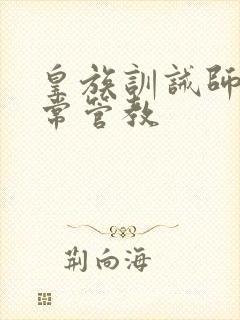 皇族訓誡師
常管教
荆向海